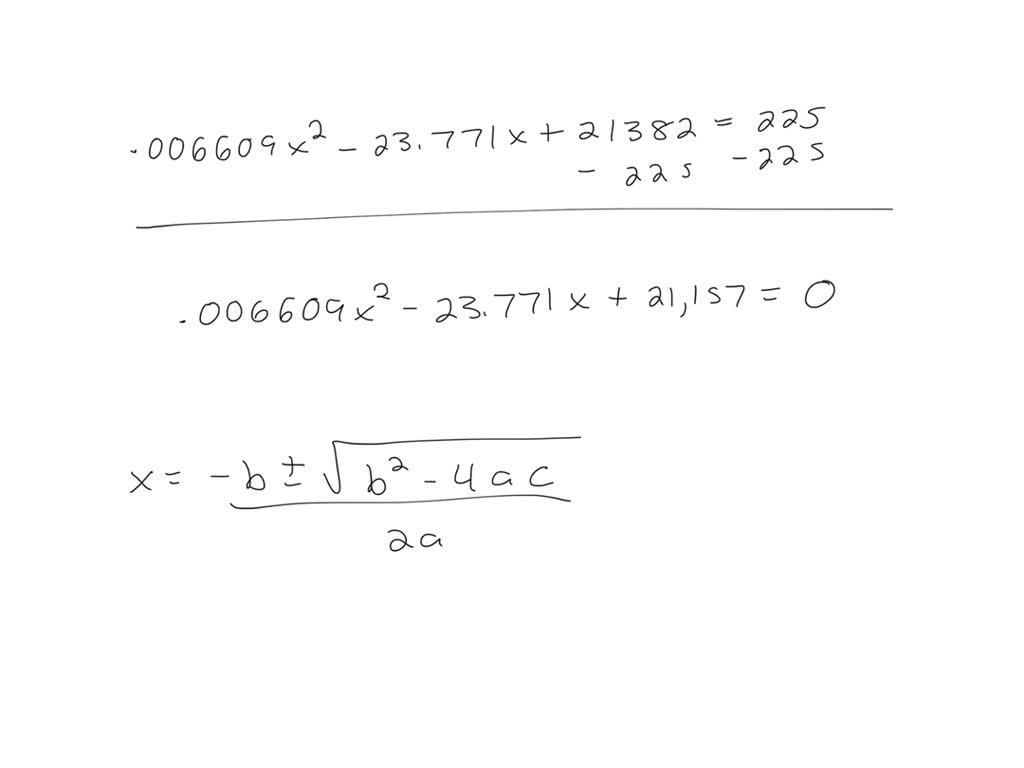 .006609x² - 23.771x + 21382 = 225
- 225 - 225
.006609x² - 23.771x + 21,157 = 0
x = -b ± √b² - 4ac
2a